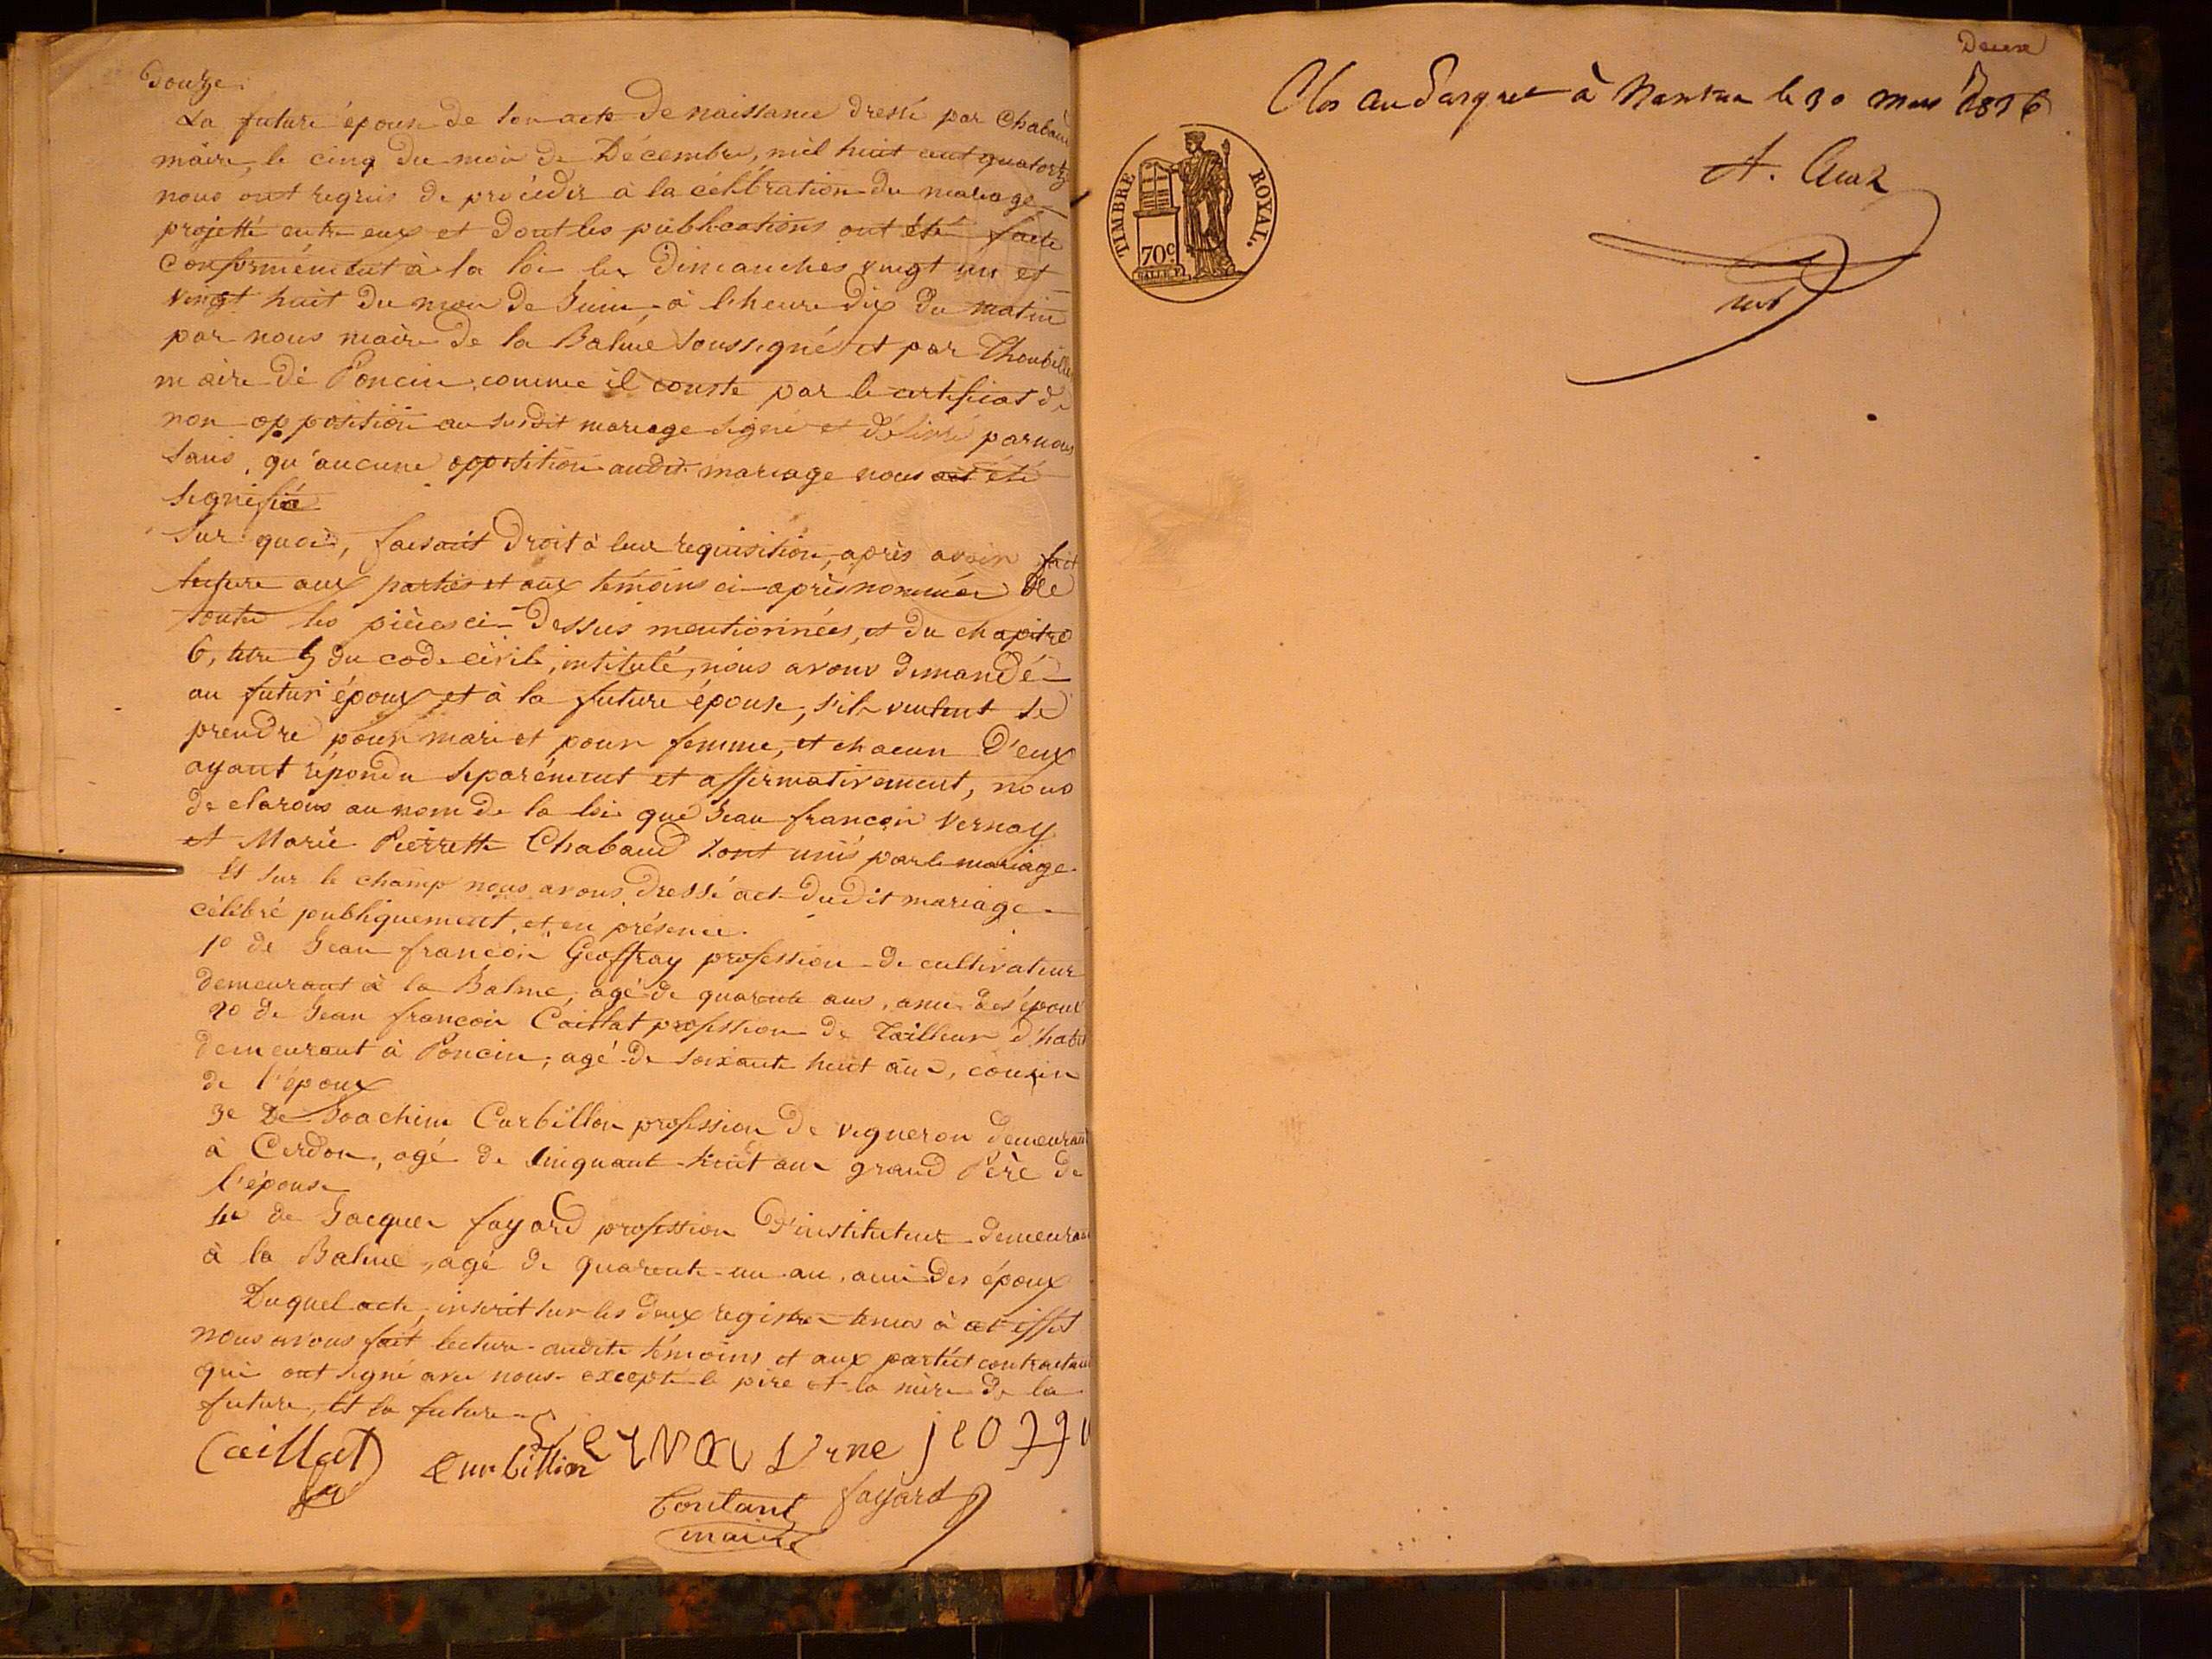 Douze.
La future épouse de son acte de naissance dressé par Chabaud
maire, le cinq du mois de Décembre, mil huit cent quatorze
nous ont requis de procéder à la célébration du mariage
projetté entre eux et dont les publications ont été faite
conformément à la loi les Dimanches vingt un et
vingt huit du mois de Juin, à l'heure dix du matin
par nous maire de la Balme soussigné et par
maire de Poncin, comme il conste par le certificat de
non opposition au susdit mariage signé et délivré par nous
sans qu'aucune opposition audit mariage nous ait été
signifiée.
Sur quoi, faisant droit à leur requisition, après avoir fait
lecture aux parties et aux témoins ci-après nommés de
toutes les pièces ci-dessus mentionnées, et du chapitre
6, titre 5 du code civile, intitulé, nous avons demandé
au futur époux et à la future épouse, s'ils veulent se
prendre pour mari et pour femme, et chacun d'eux
ayant répondu séparément et affirmativement, nous
declarons au nom de la loi que Jean françois Vernay
et Marie Pierrette Chabaud sont unis par le mariage.
Et sur le champ nous avons dressé acte dudit mariage
célébré publiquement, et en présence.
1o de Jean françois Geoffray profession de cultivateur
demeurant à la Balme, agé de quarante ans, ami des époux
2o de Jean françois Caillat profession de Tailleur d'habit
demeurant à Poncin, agé de soixante huit ans, cousin
de l'époux
3e De Joachim Curbillon profession de vigneron demeurant
à Cerdon, agé de cinquante huit ans grand Père de
l'épouse
4e de Jacques fayard profession D'instituteur demeurant
à la Balme, agé de quarante un an, ami des époux
Duquel acte, inscrit sur les deux registres tenus à cet effet
nous avons fait lecture audits témoins et aux parties contractantes
qui ont signé avec nous excepté le père et la mère de la
future, Et la future
Caillat Curbillion
Coutant fayard
maire
Deuxe
Clos au Parquet à Nantua le 30 mars 1836
TIMBRE ROYAL.
70c